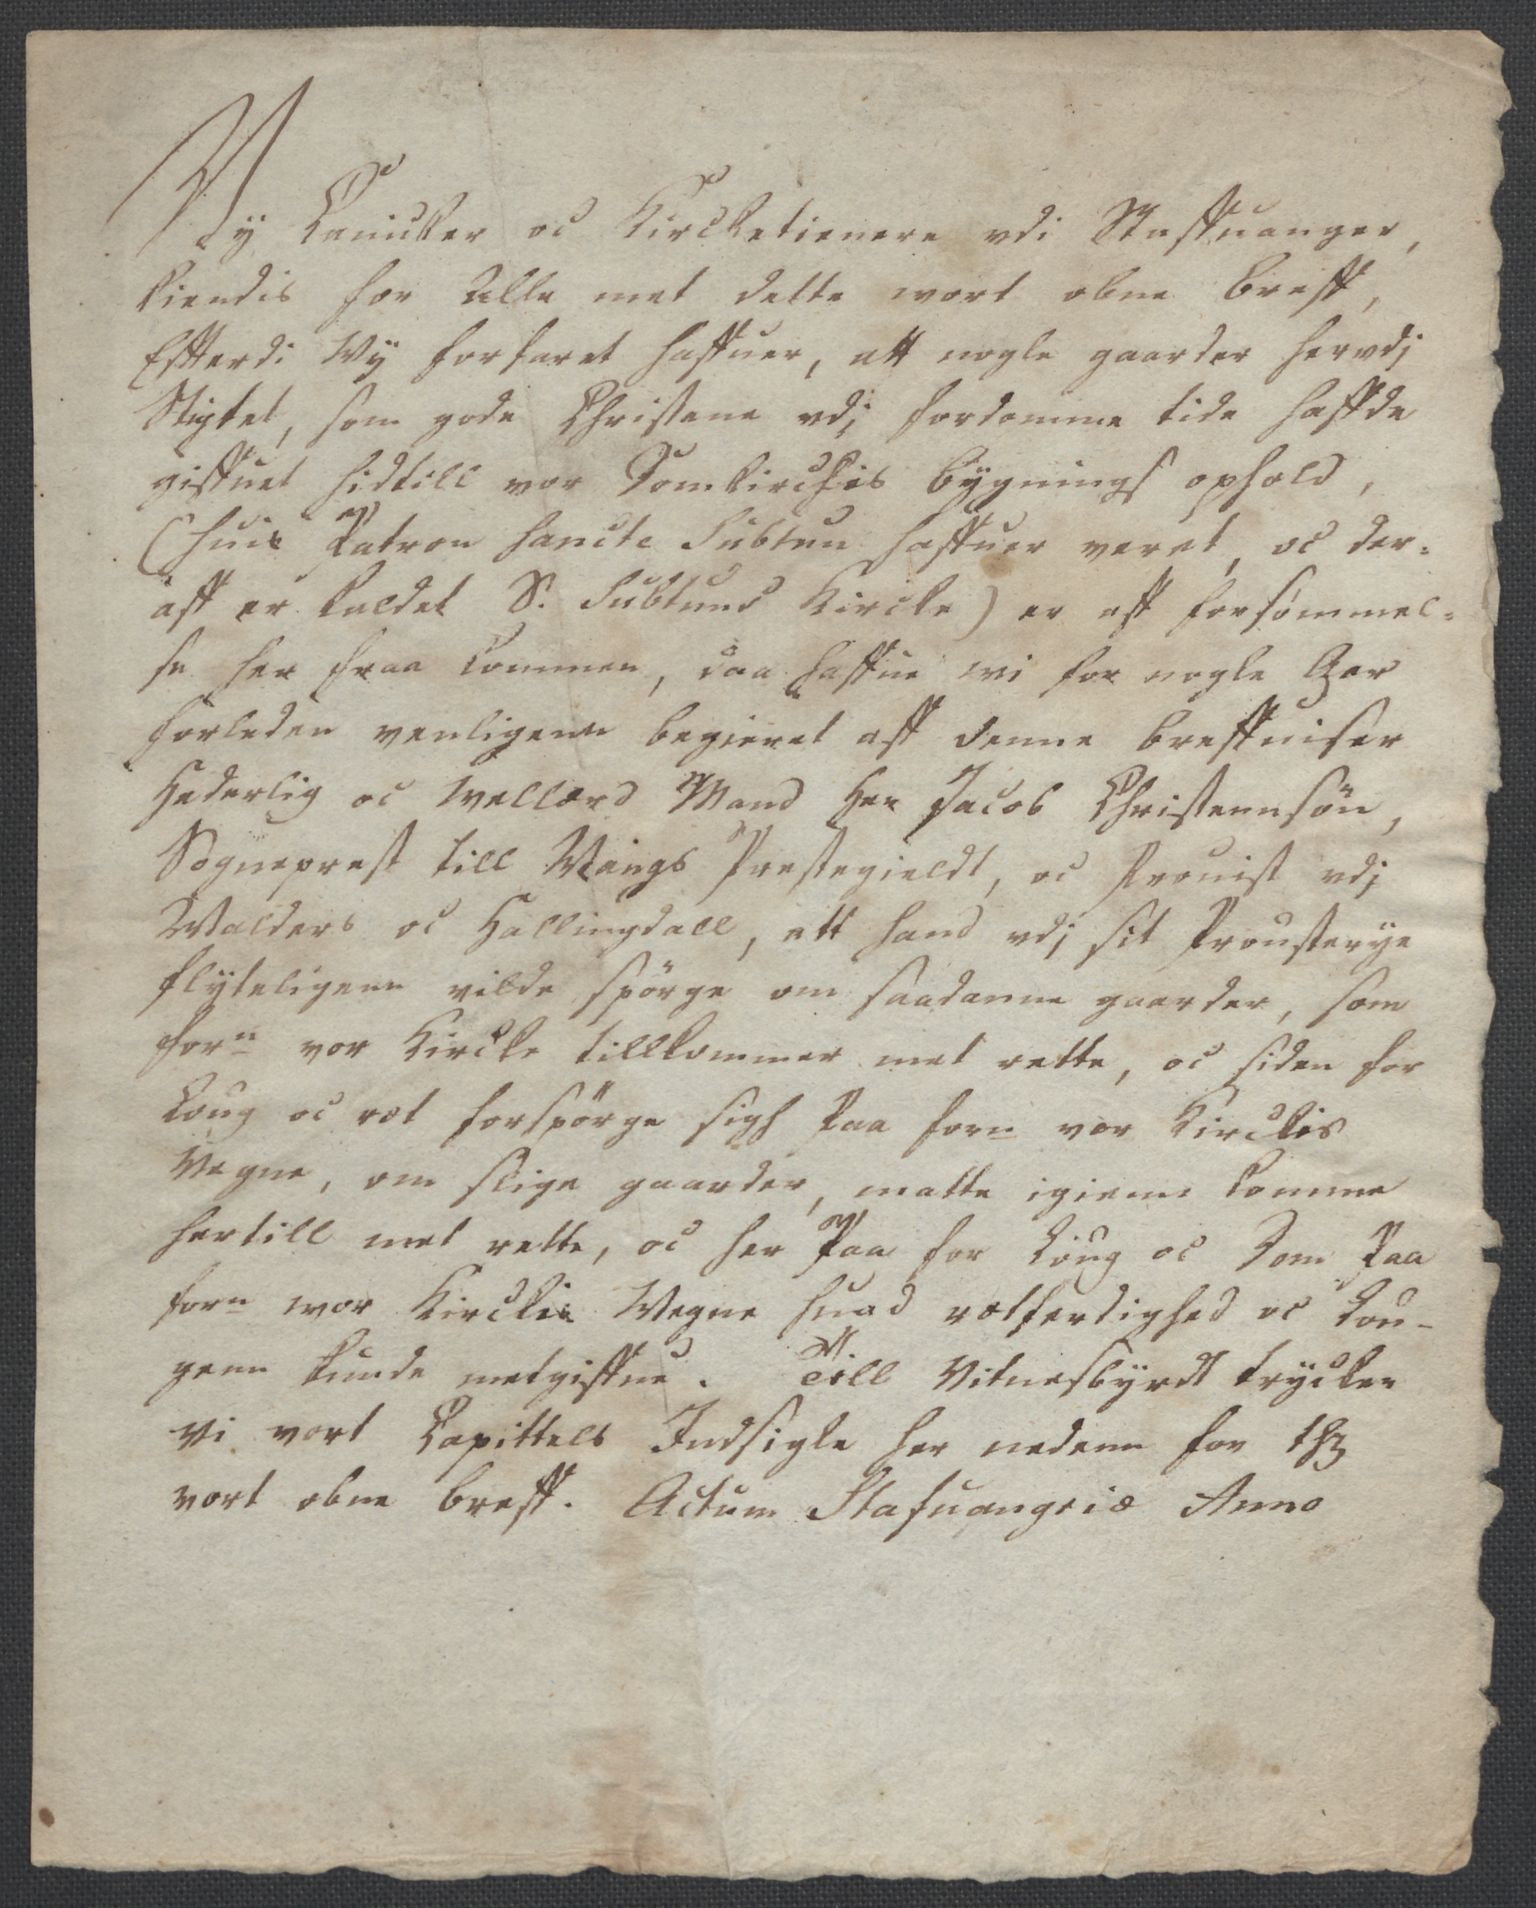 Wy Canicker oc Kircketienere vdi Staffuanger,
kiendis for Alle met dette wort obne breff,
Effterdi Wÿ forfaret haffuer, att nogle gaarder hervdj
Stiptet, som gode Christene vdj fordomme tide haffde
giffuet hidtill vor Domkirckis bÿgnings ophold,
(huis Patron Sancte Suitun haffuer veret, oc der-
aff er kaldet S. Suituns Kircke) er aff forsömmel-
se her fraa kommen, daa haffue wi for nogle Aar
forleden venligenn begieret aff denne breffuiser
Hederlig oc Wellærd Mand Her Jacob Christennsön,
Sogneprest till Wangs Prestegieldt, oc Prouist vdj
Walders oc Hallingdall, att hand vdj sit Prousterye
flyteligenn vilde spörge om saadanne gaarder, som
forn vor Kircke tillkommer met rette, oc siden for
Loug oc ret forspörge sigh Paa forn vor Kirckis
Vegne, om slige gaarder, matte igienn komme
hertill met rette, oc her Paa for Loug oc Dom Paa
forn wor Kirckis Wegne huad retferdighed oc Lou-
genn kunde metgiffue. Till Vitnesbÿrdt trycker
vi vort Capittels Indsigle her nedenn for thz
vort obne breff. Actum Stafuangriæ Anno